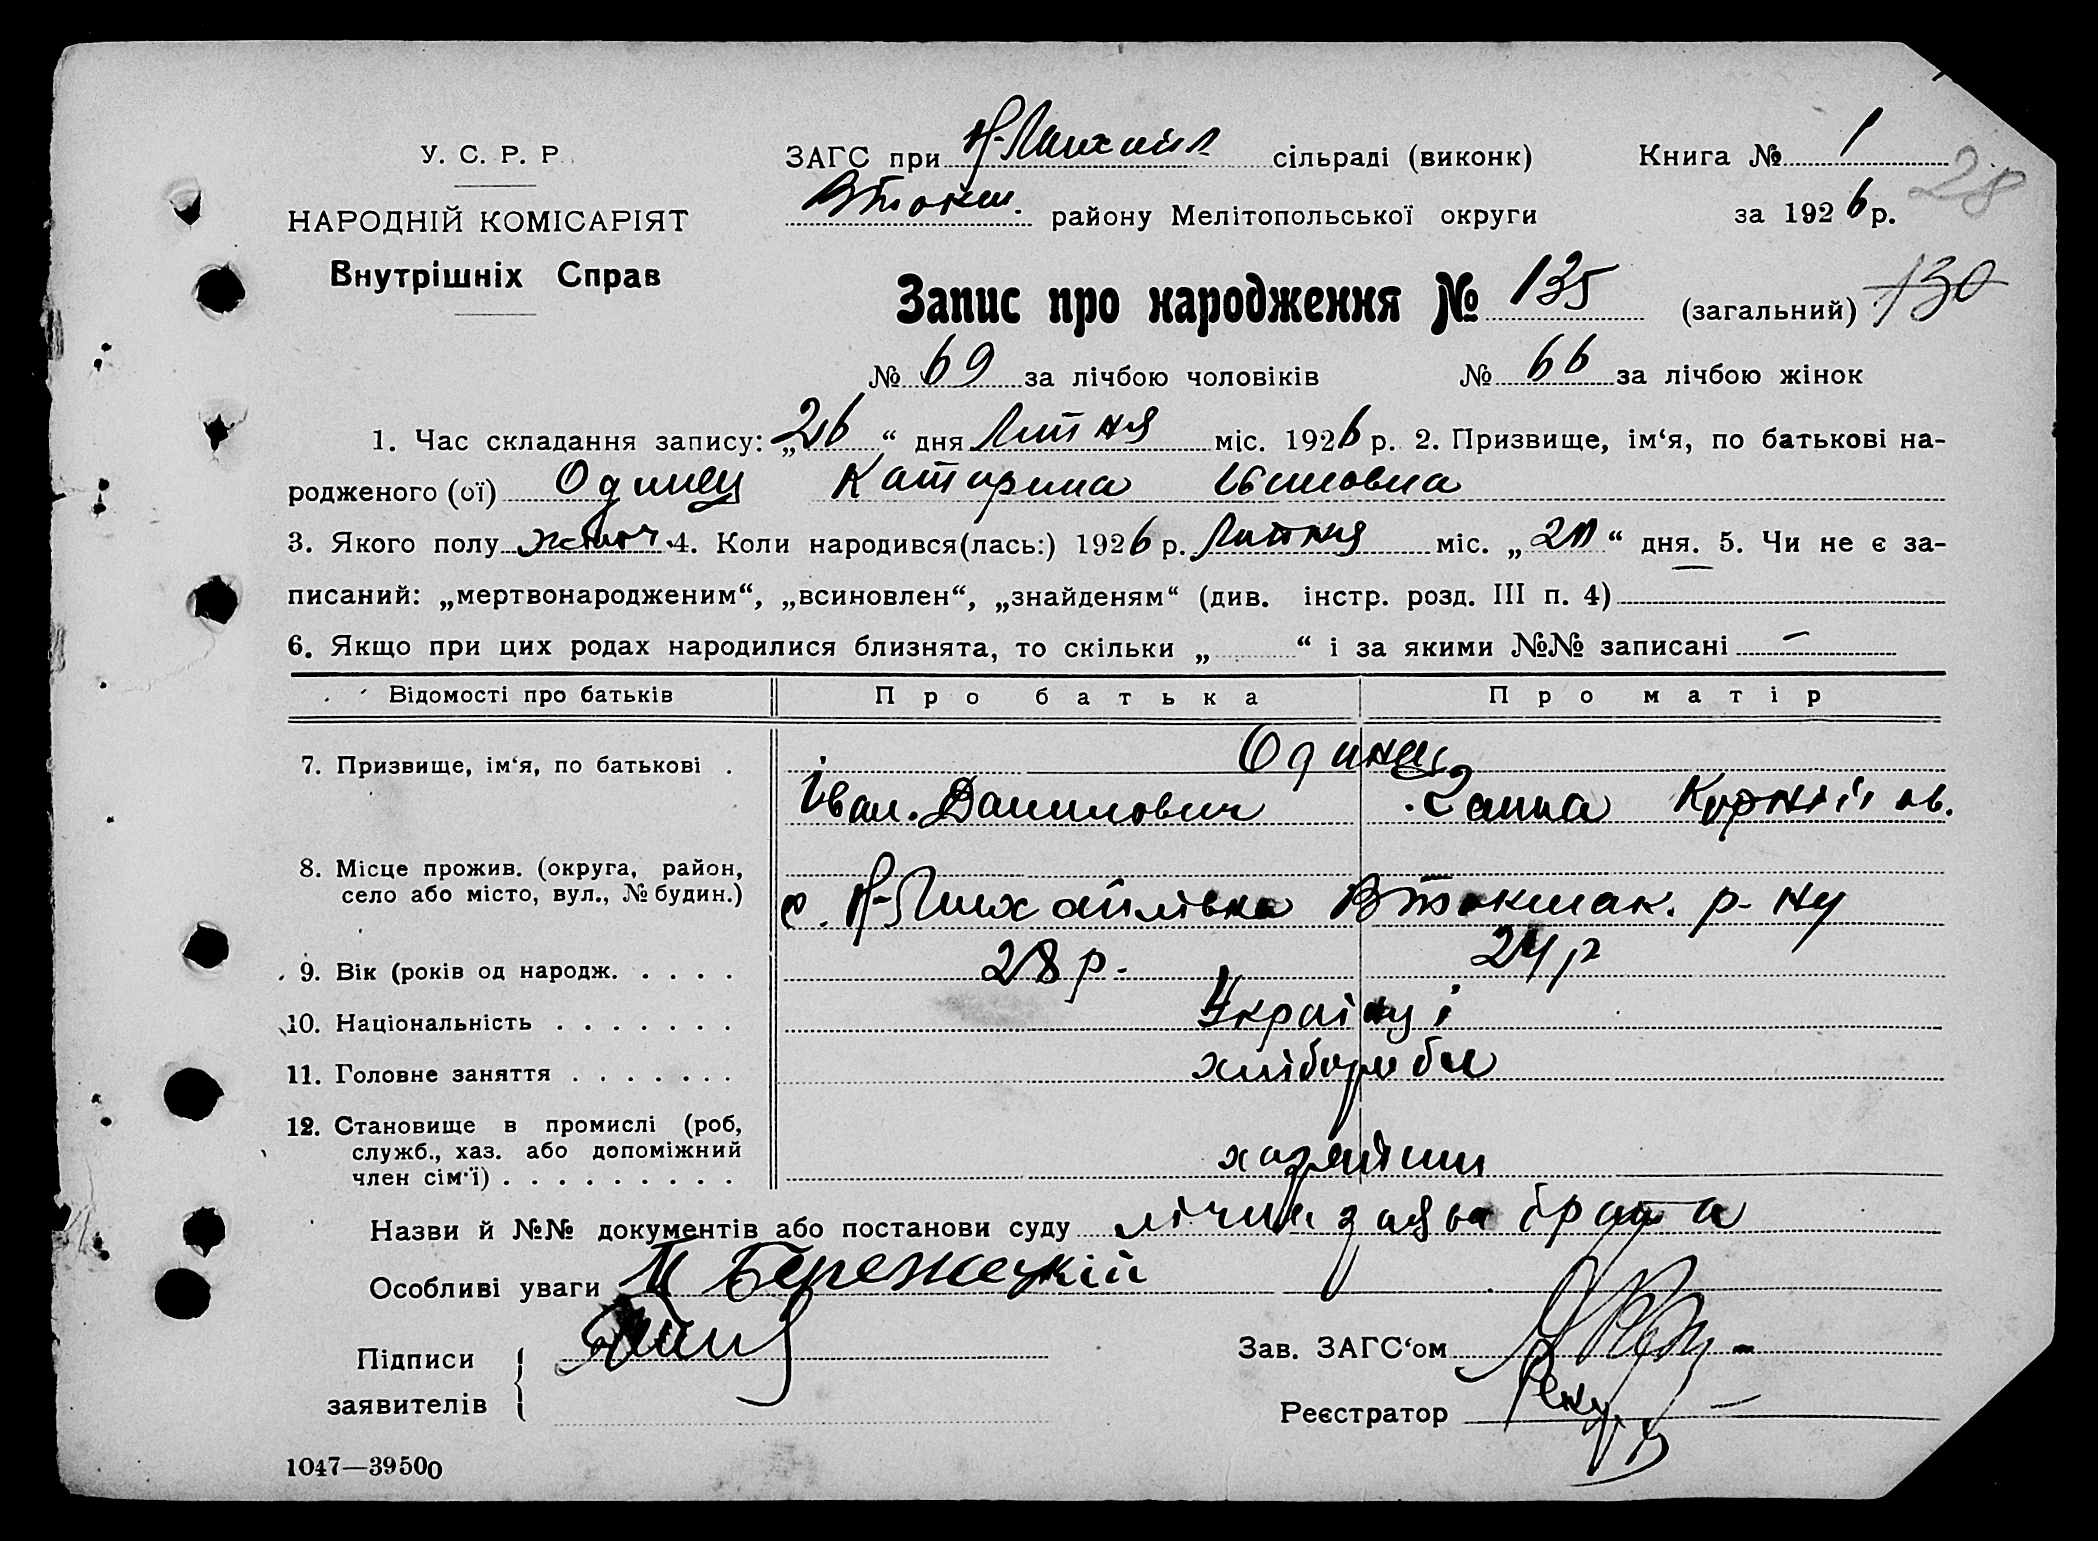 У. С. Р. Р.
НАРОДНІЙ КОМІСАРІЯТ
Внутрішніх Справ
ЗАГС при Н-Михайл сільраді (виконк)
Втокм. району Мелітопольської округи
Книга № 1
за 1926 р.
28
Запис про народження № 135 (загальний) 130
№ 69 за лічбою чоловіків № 66 за лічбою жінок
1. Час складання запису: „26“ дня Лютня міс. 1926 р. 2. Призвище, ім‘я, по батькові на-
родженого (ої) Одинец Катирина Ивановна
3. Якого полу жіноч. 4. Коли народився(лась:) 1926 р. Лютня міс. „20“ дня. 5. Чи не є за-
писаний: „мертвонародженим“, „всиновлен“, „знайденям“ (див. інстр. розд. III п. 4)
6. Якщо при цих родах народилися близнята, то скільки „ “ і за якими №№ записані —
Відомості про батьків Про батька Про матір
7. Призвище, ім‘я, по батькові . Одинец
Іван. Данилович Ганна Корніїов.
8. Місце прожив. (округа, район,
село або місто, вул., № будин.) с. Н-Михайлівка Втокмак. р-ну
9. Вік (років од народж. . . . . 28 р. 24 р
10. Національність . . . . . . . Українці
11. Головне заняття . . . . . . . хлібороби
12. Становище в промислі (роб,
служб., хаз. або допоміжний
член сім‘ї) . . . . . . . . . хазяїни
Назви й №№ документів або постанови суду лічна заява брата
Особливі уваги М Бережецкій
Підписи
заявителів
Зав. ЗАГС‘ом
Реєстратор
1047—39500